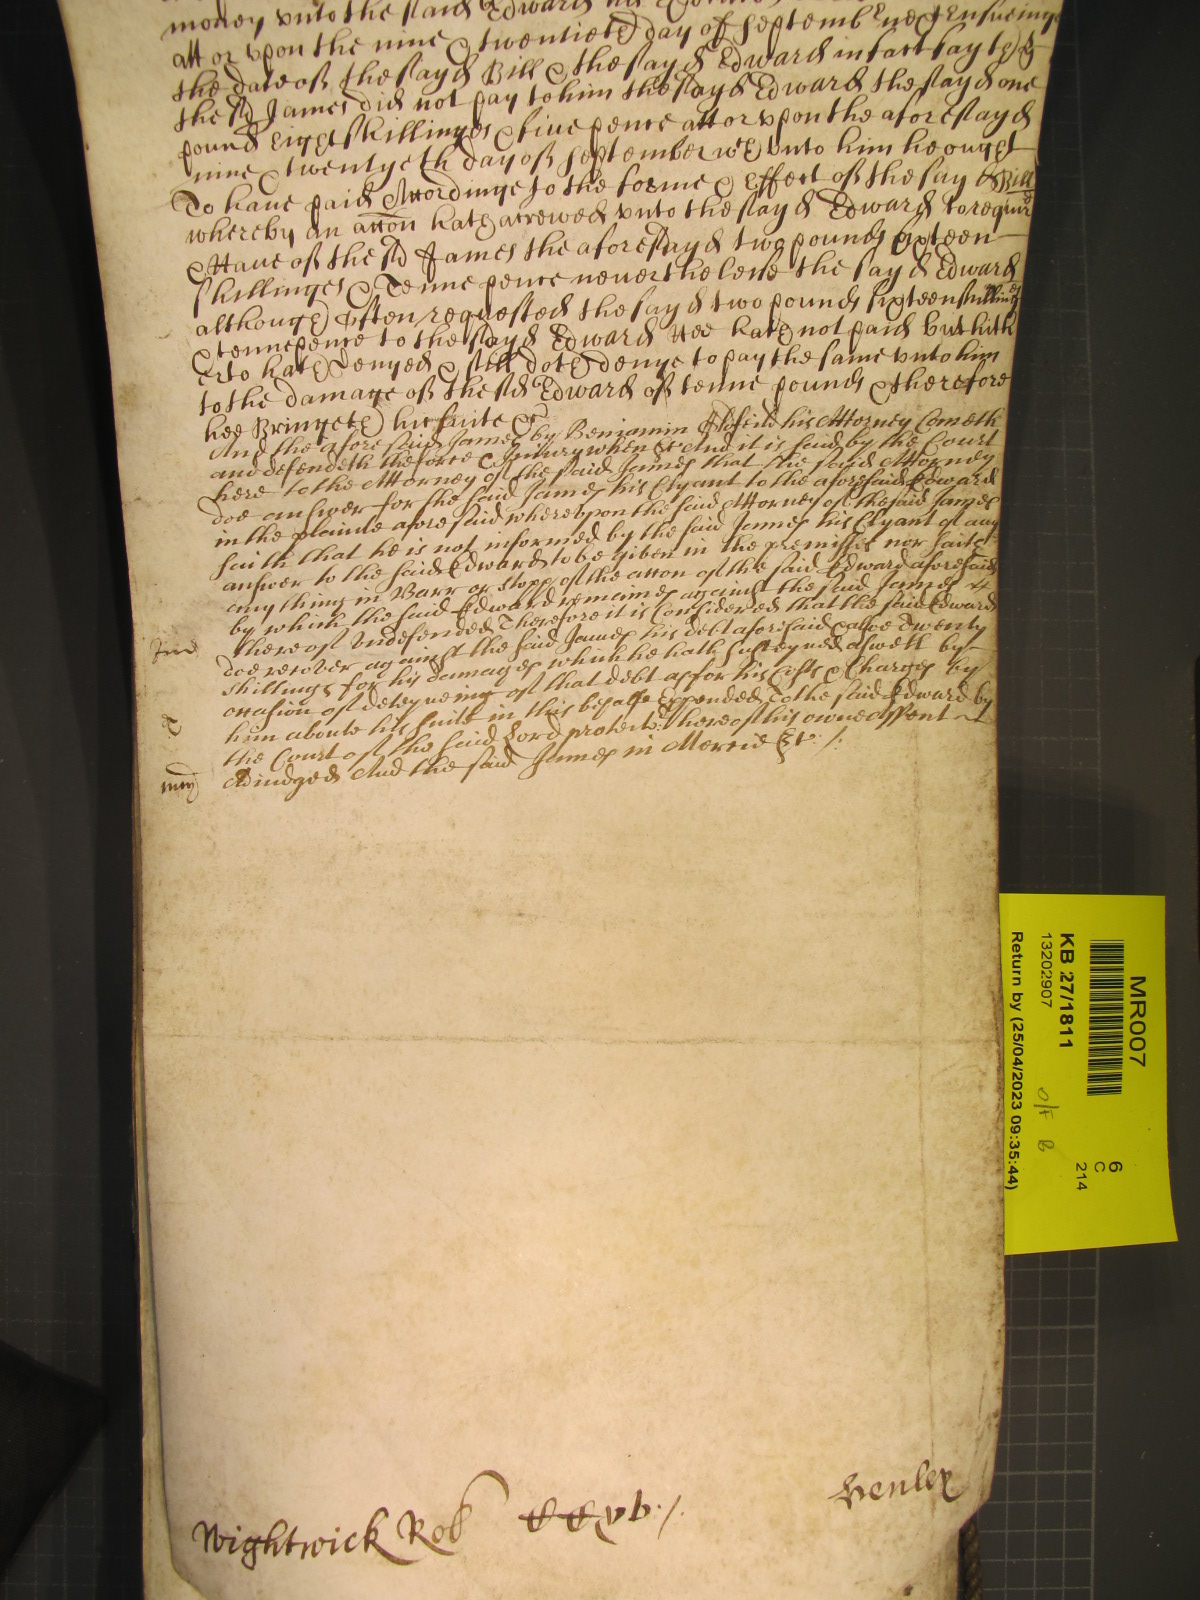 money vnto the said Edward his
att or vpon the nine & twentieth day of September next Ensueinge
the date of the sayd Bill & the sayd Edward in fact sayth
the sd James did not pay to him the sayd Edward the sayd one
pound Eight shillinges & fiue pence att or vpon the aforesayd
nine & twentyeth day of September wch vnto him he ought
To haue paid Accordinge to the forme & effect of the sayd Bill
whereby an accon hath accrewed vnto the sayd Edward to require
& Haue of the sd James the aforesayd two pounds sixteen
shillinges & Tenne pence neuerthelesse the sayd Edward
although often requested the sayd two pounds sixteen shillings
& tennepence to the sayd Edward Hee hath not paid but hith
erto hath Denyed & still doth denye to pay the same vnto him
to the damage of the sd Edward of tenne pounds & therefore
hee Bringeth his suite &
And the aforesaid James by Beniamin his Attorney Cometh
and defendeth the force & Iniury when &c And it is said by the Court
here to the Attorney of the said James that the said Attorney
doe answer for the said James his Clyant to the aforesaid Edward
in the plainte aforesaid wherevpon the said Attorney of the said James
saith that he is not informed by the said James his Clyant of any
answer to the said Edward to be given in the premisses nor saith
any thing in Barr or stopp of the accon of the said Edward aforesaid
by which the said Edward remaines against the said James
thereof Vndefended Therefore it is Considered that the said Edward
Jud doe recover against the said James his debt aforesaid Twenty
shillings for his damages which he hath susteyned aswell by
occasion of deteyneing of that debt as for his Costs & Charges by
him aboute his suite in this behalfe Expended To the said Edward by
the Court of the said Lord protector thereof his owne assent
mcy Adiudged And the said James in Mercie &c
Wightwick Rob
Henley
MR007
KB 27/1811
13202907
Return by (25/04/2023 09:35:44)
O/F B
6
C
214